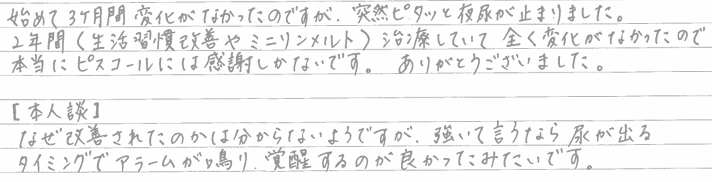 始めて3ケ月間変化がなかったのですが、突然ピタッと夜尿が止まりました。
2年間(生活習慣改善やミニリンメルト)治療していて全く変化がなかったので
本当にピスコールには感謝しかないです。 ありがとうございました。
[本人談]
なぜ改善されたのかは分からないようですが、強いて言うなら尿が出る
タイミングでアラームが鳴り、覚醒するのが良かったみたいです。